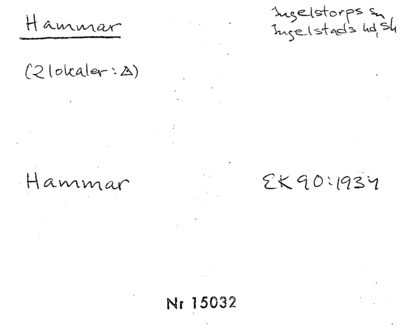 Hammar
Ingelstorps sn
Ingelstads hd, Sk
(2 lokaler : ⚠)
Hammar
EK 90:1934
Nr 15032